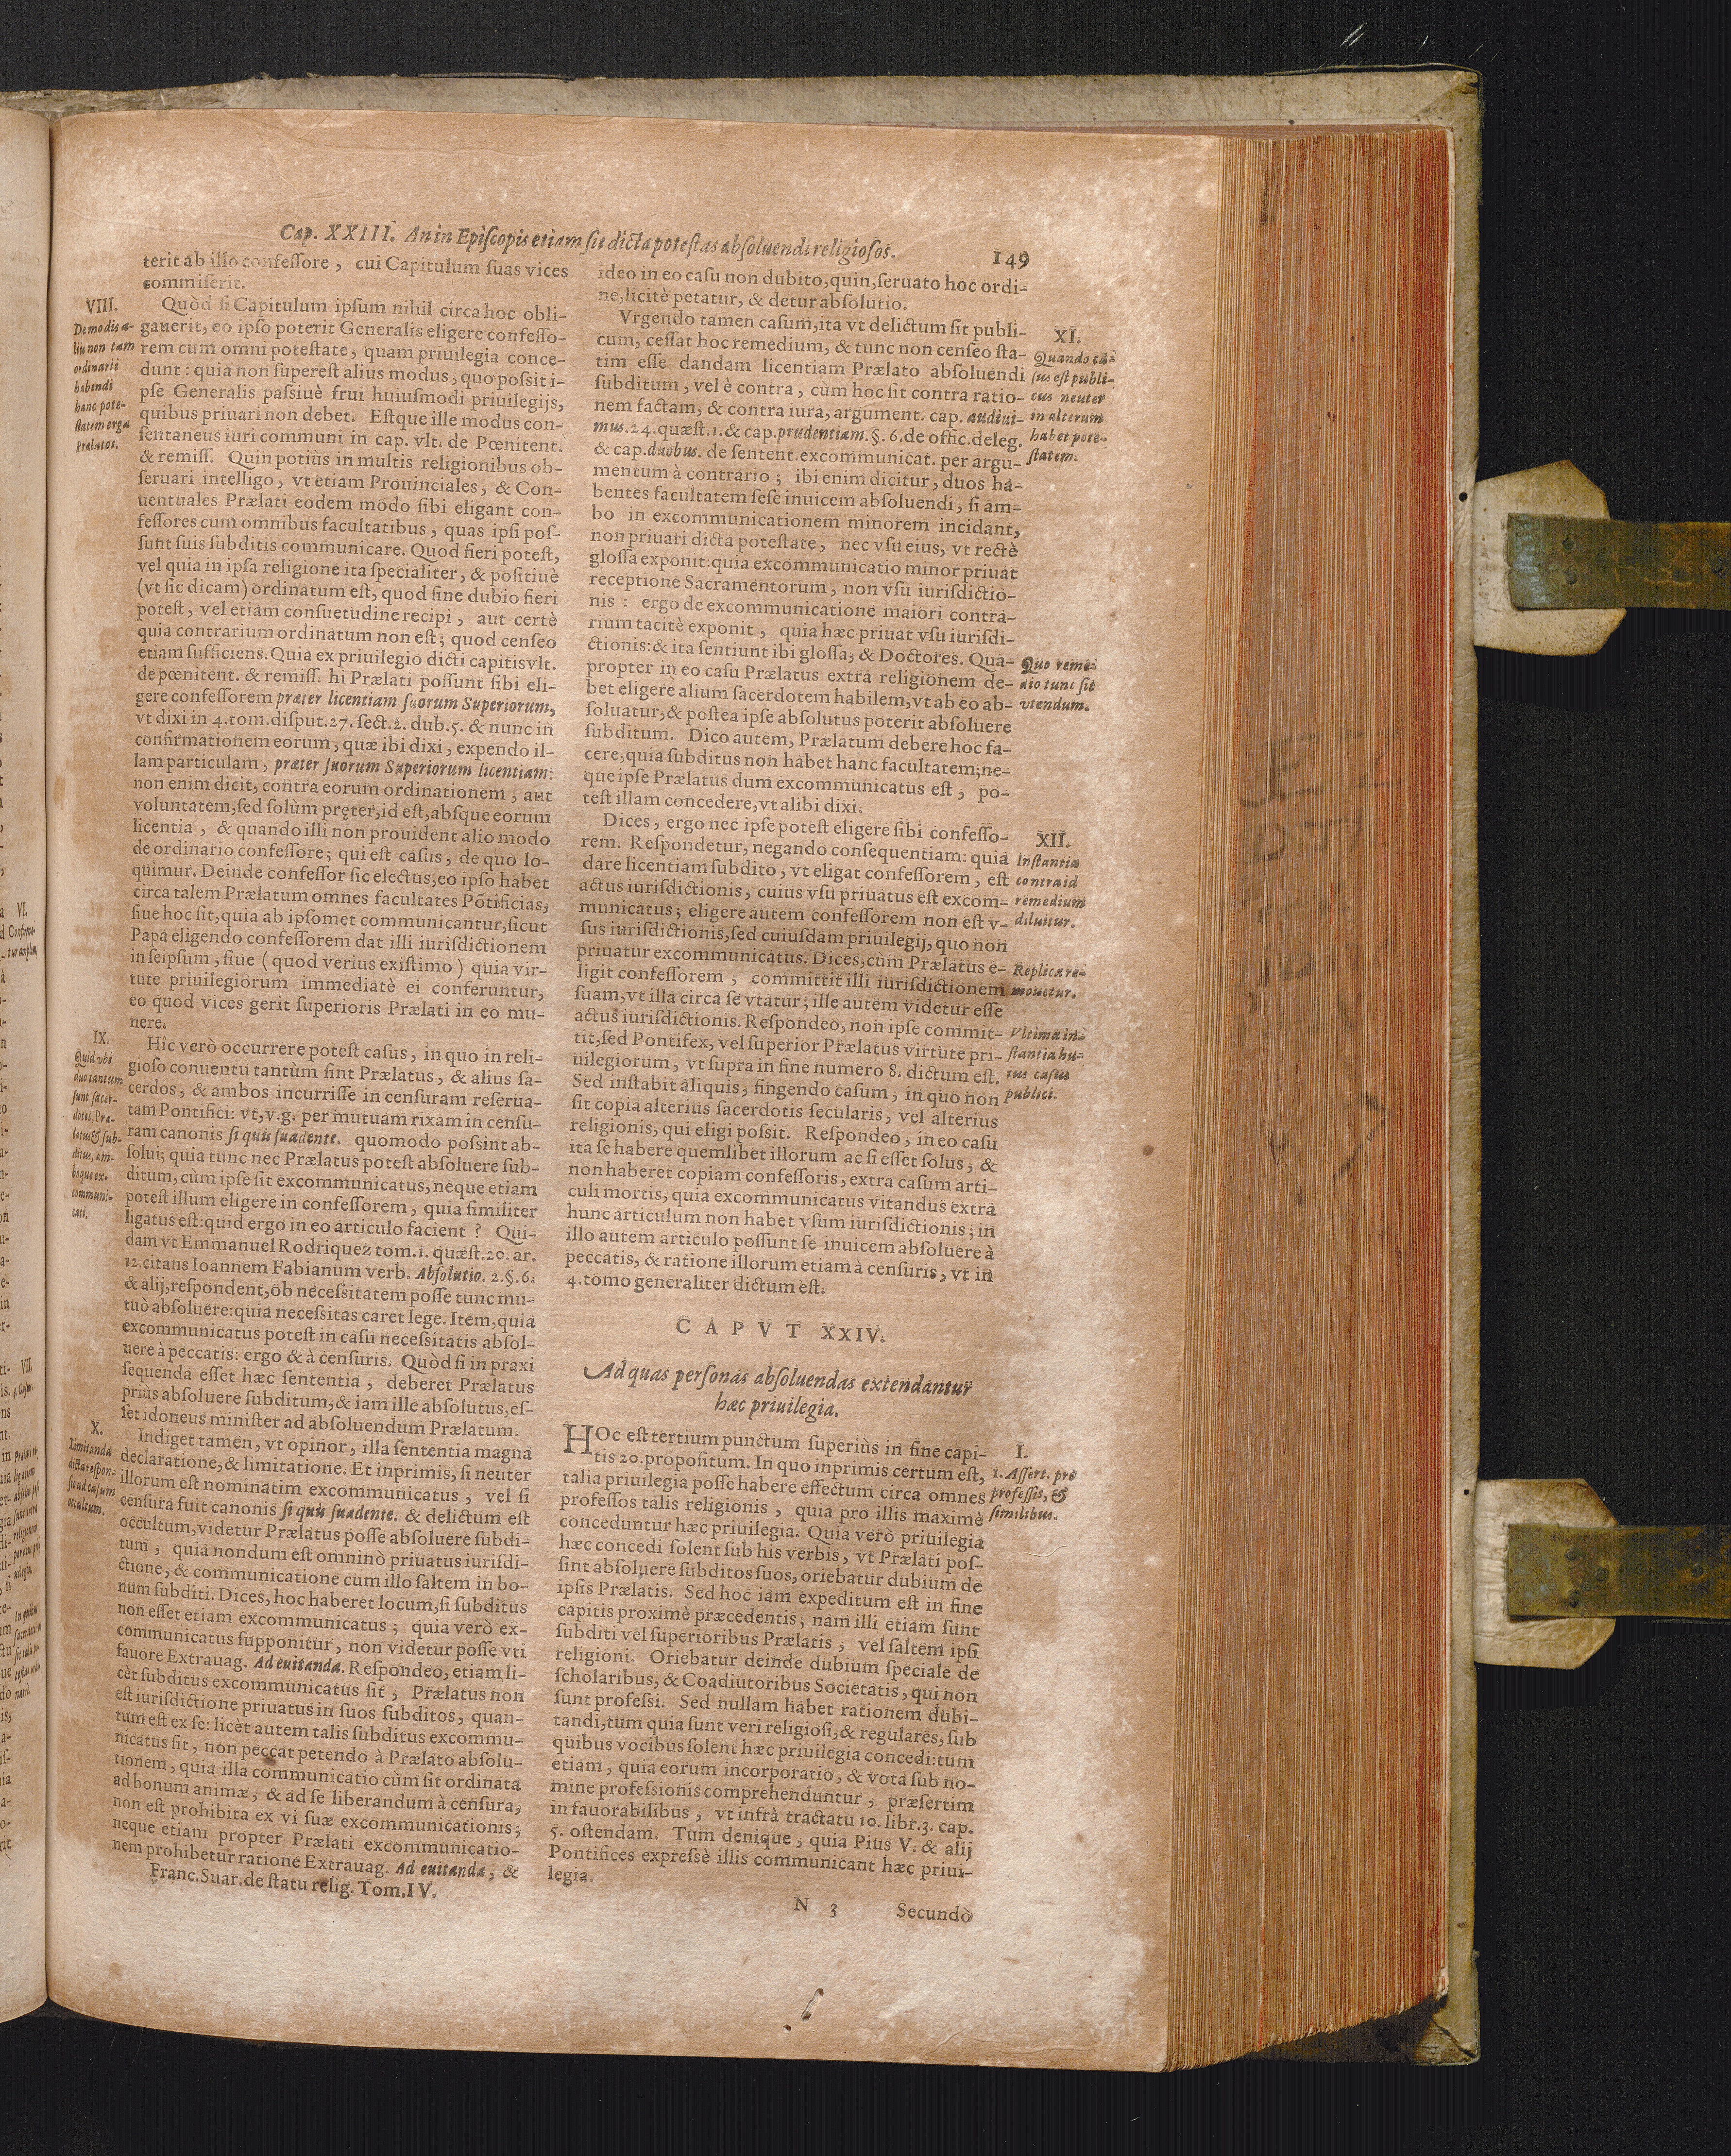 Cap. XXIII. An in Episcopis etiam sit dicta potestas absoluendi religiosos.
149
terit ab illo confessore, cui Capitulum suas vices
commiserit.
VIII.
De modis a-
liis non tam
ordinarii
habendi
hanc pote-
statem erga
Prælatos.
Quòd si Capitulum ipsum nihil circa hoc obli-
gauerit, eo ipso poterit Generalis eligere confesso-
rem cum omni potestate, quam priuilegia conce-
dunt: quia non superest alius modus, quo possit i-
pse Generalis passiuè frui huiusmodi priuilegijs,
quibus priuari non debet. Estque ille modus con-
sentaneus iuri communi in cap. vlt. de Pœnitent.
& remiss. Quin potiùs in multis religionibus ob-
seruari intelligo, vt etiam Prouinciales, & Con-
uentuales Prælati eodem modo sibi eligant con-
fessores cum omnibus facultatibus, quas ipsi pos-
sunt suis subditis communicare. Quod fieri potest,
vel quia in ipsa religione ita specialiter, & positiuè
(vt sic dicam) ordinatum est, quod sine dubio fieri
potest, vel etiam consuetudine recipi, aut certè
quia contrarium ordinatum non est; quod censeo
etiam sufficiens. Quia ex priuilegio dicti capitis vlt.
de pœnitent. & remiss. hi Prælati possunt sibi eli-
gere confessorem præter licentiam suorum Superiorum,
vt dixi in 4. tom. disput. 27. sect. 2. dub. 5. & nunc in
confirmationem eorum, quæ ibi dixi, expendo il-
lam particulam, præter suorum Superiorum licentiam:
non enim dicit, contra eorum ordinationem, aut
voluntatem, sed solùm pręter, id est, absque eorum
licentia, & quando illi non prouident alio modo
de ordinario confessore; qui est casus, de quo lo-
quimur. Deinde confessor sic electus, eo ipso habet
circa talem Prælatum omnes facultates Põtificias,
siue hoc sit, quia ab ipsomet communicantur, sicut
Papa eligendo confessorem dat illi iurisdictionem
in seipsum, siue (quod verius existimo) quia vir-
tute priuilegiorum immediatè ei conferuntur,
eo quod vices gerit superioris Prælati in eo mu-
nere.
IX.
Quid vbi
duo tantum
sunt sacer-
dotes, Præ-
latus & sub-
ditus, am-
boque ex-
communi-
cati.
Hîc verò occurrere potest casus, in quo in reli-
gioso conuentu tantùm sint Prælatus, & alius sa-
cerdos, & ambos incurrisse in censuram reserua-
tam Pontifici: vt, v.g. per mutuam rixam in censu-
ram canonis si quis suadente. quomodo possint ab-
solui; quia tunc nec Prælatus potest absoluere sub-
ditum, cùm ipse sit excommunicatus, neque etiam
potest illum eligere in confessorem, quia similiter
ligatus est: quid ergo in eo articulo facient? Qui-
dam vt Emmanuel Rodriquez tom. 1. quæst. 20. ar.
12. citans Ioannem Fabianum verb. Absolutio. 2. §. 6.
& alij, respondent, ob necessitatem posse tunc mu-
tuò absoluere: quia necessitas caret lege. Item, quia
excommunicatus potest in casu necessitatis absol-
uere à peccatis: ergo & à censuris. Quòd si in praxi
sequenda esset hæc sententia, deberet Prælatus
priùs absoluere subditum, & iam ille absolutus, es-
set idoneus minister ad absoluendum Prælatum.
X.
Limitanda
dicta respon-
sio ad casum
occultum.
Indiget tamen, vt opinor, illa sententia magna
declaratione, & limitatione. Et inprimis, si neuter
illorum est nominatim excommunicatus, vel si
censura fuit canonis si quis suadente. & delictum est
occultum, videtur Prælatus posse absoluere subdi-
tum, quia nondum est omninò priuatus iurisdi-
ctione, & communicatione cum illo saltem in bo-
num subditi. Dices, hoc haberet locum, si subditus
non esset etiam excommunicatus; quia verò ex-
communicatus supponitur, non videtur posse vti
fauore Extrauag. Ad euitanda. Respondeo, etiam li-
cèt subditus excommunicatus sit, Prælatus non
est iurisdictione priuatus in suos subditos, quan-
tum est ex se: licèt autem talis subditus excommu-
nicatus sit, non peccat petendo à Prælato absolu-
tionem, quia illa communicatio cùm sit ordinata
ad bonum animæ, & ad se liberandum à censura,
non est prohibita ex vi suæ excommunicationis;
neque etiam propter Prælati excommunicatio-
nem prohibetur ratione Extrauag. Ad euitanda, &
Franc. Suar. de statu relig. Tom. IV.
ideo in eo casu non dubito, quin, seruato hoc ordi-
ne, licitè petatur, & detur absolutio.
Vrgendo tamen casum, ita vt delictum sit publi-
cum, cessat hoc remedium, & tunc non censeo sta-
tim esse dandam licentiam Prælato absoluendi
subditum, vel è contra, cùm hoc sit contra ratio-
nem factam, & contra iura, argument. cap. audiui-
mus. 24. quæst. 1. & cap. prudentiam. §. 6. de offic. deleg.
& cap. duobus. de sentent. excommunicat. per argu-
mentum à contrario; ibi enim dicitur, duos ha-
bentes facultatem sese inuicem absoluendi, si am-
bo in excommunicationem minorem incidant,
non priuari dicta potestate, nec vsu eius, vt rectè
glossa exponit: quia excommunicatio minor priuat
receptione Sacramentorum, non vsu iurisdictio-
nis: ergo de excommunicatione maiori contra-
rium tacitè exponit, quia hæc priuat vsu iurisdi-
ctionis: & ita sentiunt ibi glossa, & Doctores. Qua-
propter in eo casu Prælatus extra religionem de-
bet eligere alium sacerdotem habilem, vt ab eo ab-
soluatur, & postea ipse absolutus poterit absoluere
subditum. Dico autem, Prælatum debere hoc fa-
cere, quia subditus non habet hanc facultatem; ne-
que ipse Prælatus dum excommunicatus est, po-
test illam concedere, vt alibi dixi.
XI.
Quando ca-
sus est publi-
cus neuter
in alterum
habet pote-
statem.
Quo reme-
dio tunc sit
vtendum.
Dices, ergo nec ipse potest eligere sibi confesso-
rem. Respondetur, negando consequentiam: quia
dare licentiam subdito, vt eligat confessorem, est
actus iurisdictionis, cuius vsu priuatus est excom-
municatus; eligere autem confessorem non est v-
sus iurisdictionis, sed cuiusdam priuilegij, quo non
priuatur excommunicatus. Dices, cùm Prælatus e-
ligit confessorem, committit illi iurisdictionem
suam, vt illa circa se vtatur; ille autem videtur esse
actus iurisdictionis. Respondeo, non ipse commit-
tit, sed Pontifex, vel superior Prælatus virtute pri-
uilegiorum, vt supra in fine numero 8. dictum est.
Sed instabit aliquis, fingendo casum, in quo non
sit copia alterius sacerdotis secularis, vel alterius
religionis, qui eligi possit. Respondeo, in eo casu
ita se habere quemlibet illorum ac si esset solus, &
non haberet copiam confessoris, extra casum arti-
culi mortis, quia excommunicatus vitandus extra
hunc articulum non habet vsum iurisdictionis; in
illo autem articulo possunt se inuicem absoluere à
peccatis, & ratione illorum etiam à censuris, vt in
4. tomo generaliter dictum est.
XII.
Instantia
contra id
remedium
diluitur.
Replica re-
mouetur.
Vltima in-
stantia hu-
ius casus
publici.
CAPVT XXIV.
Ad quas personas absoluendas extendantur
hæc priuilegia.
HOc est tertium punctum superiùs in fine capi-
tis 20. propositum. In quo inprimis certum est,
talia priuilegia posse habere effectum circa omnes
professos talis religionis, quia pro illis maximè
conceduntur hæc priuilegia. Quia verò priuilegia
hæc concedi solent sub his verbis, vt Prælati pos-
sint absoluere subditos suos, oriebatur dubium de
ipsis Prælatis. Sed hoc iam expeditum est in fine
capitis proximè præcedentis; nam illi etiam sunt
subditi vel superioribus Prælatis, vel saltem ipsi
religioni. Oriebatur deinde dubium speciale de
scholaribus, & Coadiutoribus Societatis, qui non
sunt professi. Sed nullam habet rationem dubi-
tandi, tum quia sunt veri religiosi, & regulares, sub
quibus vocibus solent hæc priuilegia concedi: tum
etiam, quia eorum incorporatio, & vota sub no-
mine professionis comprehenduntur, præsertim
in fauorabilibus, vt infrà tractatu 10. libr. 3. cap.
5. ostendam. Tum denique, quia Pius V. & alij
Pontifices expressè illis communicant hæc priui-
legia.
I.
1. Assert. pro
professis, &
similibus.
N 3
Secundò